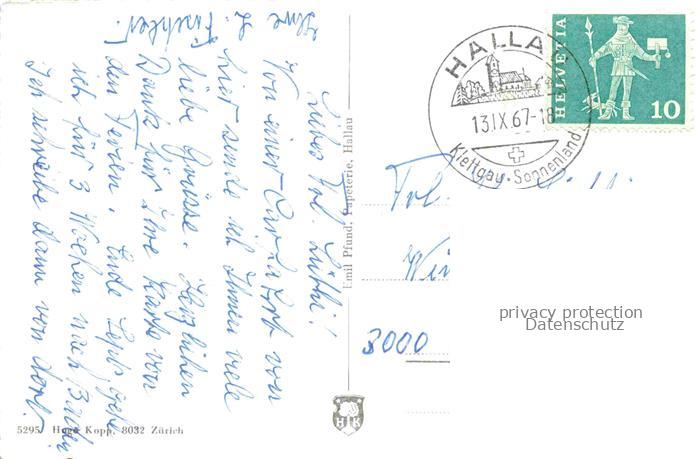 Liebes Frl. Lüthi!
Von einer Car Fahrt von
hier sende ich Ihnen viele
liebe Grüsse. Herzlichen
Dank für Ihre Karte von
den Ferien. Ende Sept. gehe
ich für 3 Wochen nach
Ich schreibe dann von dort.
Ihre
Emil Pfund, Papeterie, Hallau
5295 Hugo Kopp, 8032 Zürich
HK
HALLAU
13.IX.67-18
Klettgau-Sonnenland
HELVETIA
10
Frl.
3000
privacy protection
Datenschutz